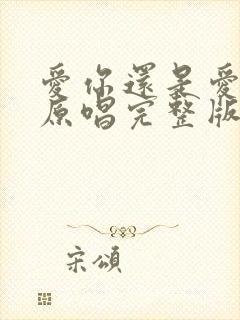 愛你還是愛
原唱完整版
宋頌